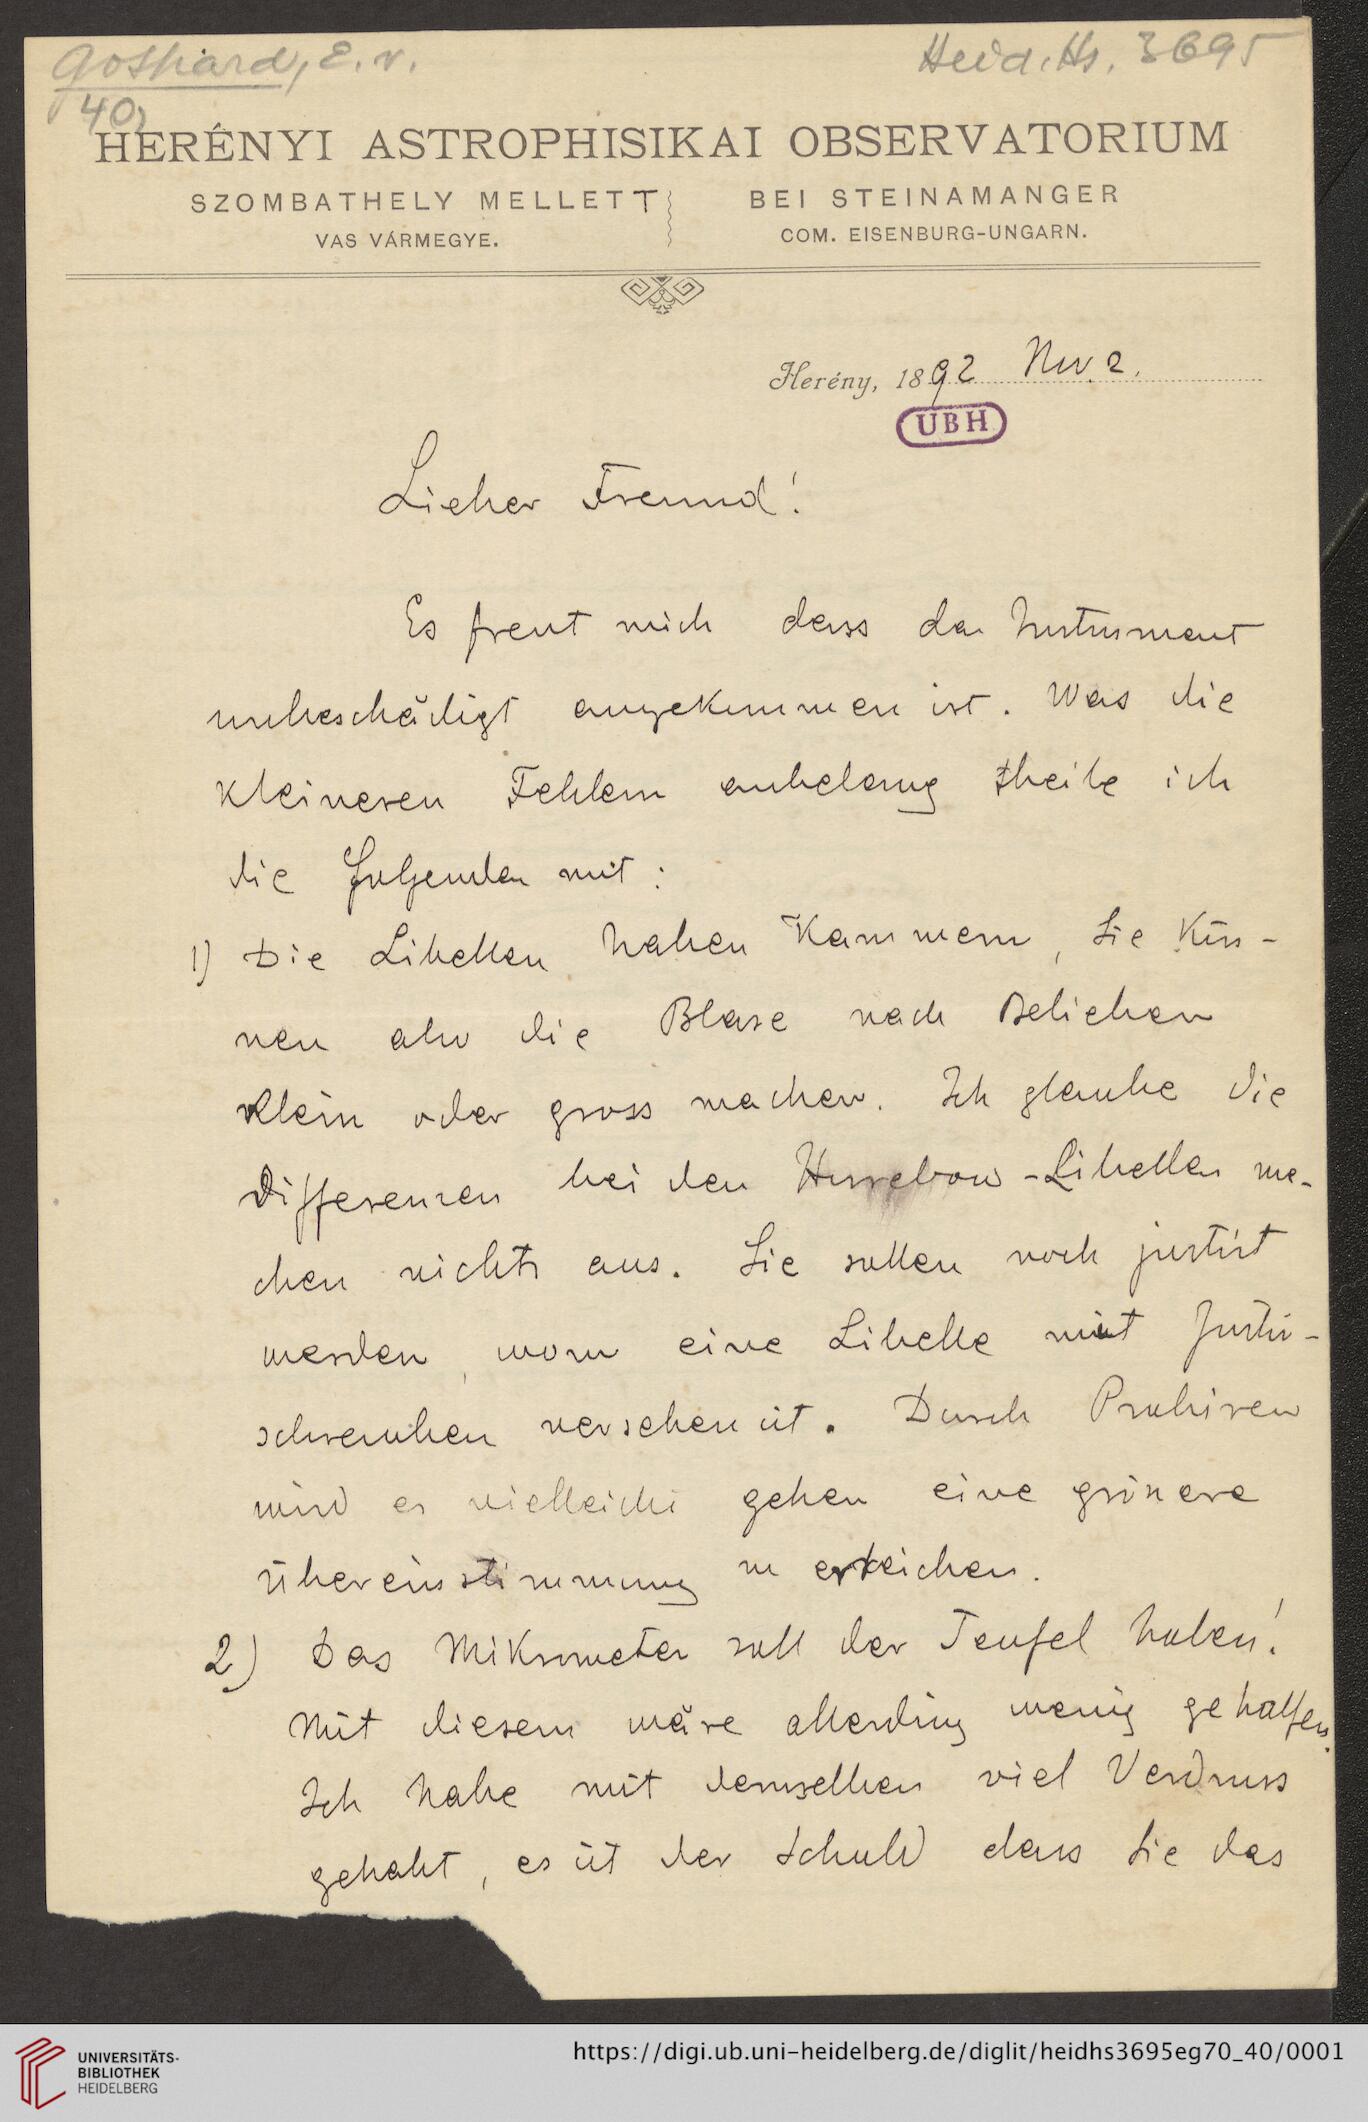 Gothard, E. v.
Heid. Hs. 3695
40,
HERÉNYI ASTROPHISIKAI OBSERVATORIUM
SZOMBATHELY MELLETT
BEI STEINAMANGER
VAS VÁRMEGYE.
COM. EISENBURG-UNGARN.
Herény, 1892 Nov 2.
UBH
Lieber Freund!
Es freut mich dass das Instrument
unbeschädigt angekommen ist. Was die
kleineren Fehlern anbelang theile ich
die folgenden mit:
1) Die Libellen haben Kammern, Sie kön-
nen also die Blase nach Belieben
klein oder gross machen. Ich glaube die
Differenzen bei den Horrebow-Libellen ma-
chen nichts aus. Sie sollen noch justirt
werden, wozu eine Libelle mit Justir-
schrauben versehen ist. Durch Probiren
wird es vielleicht gehen eine grössere
Übereinstimmung zu erreichen.
2) Das Mikrometer soll der Teufel holen!
Mit diesem wäre allerding wenig geholfen.
Ich habe mit demselben viel Verdruss
gehabt, es ist der Schuld dass Sie das
UNIVERSITÄTS-
BIBLIOTHEK
HEIDELBERG
https://digi.ub.uni-heidelberg.de/diglit/heidhs3695eg70_40/0001